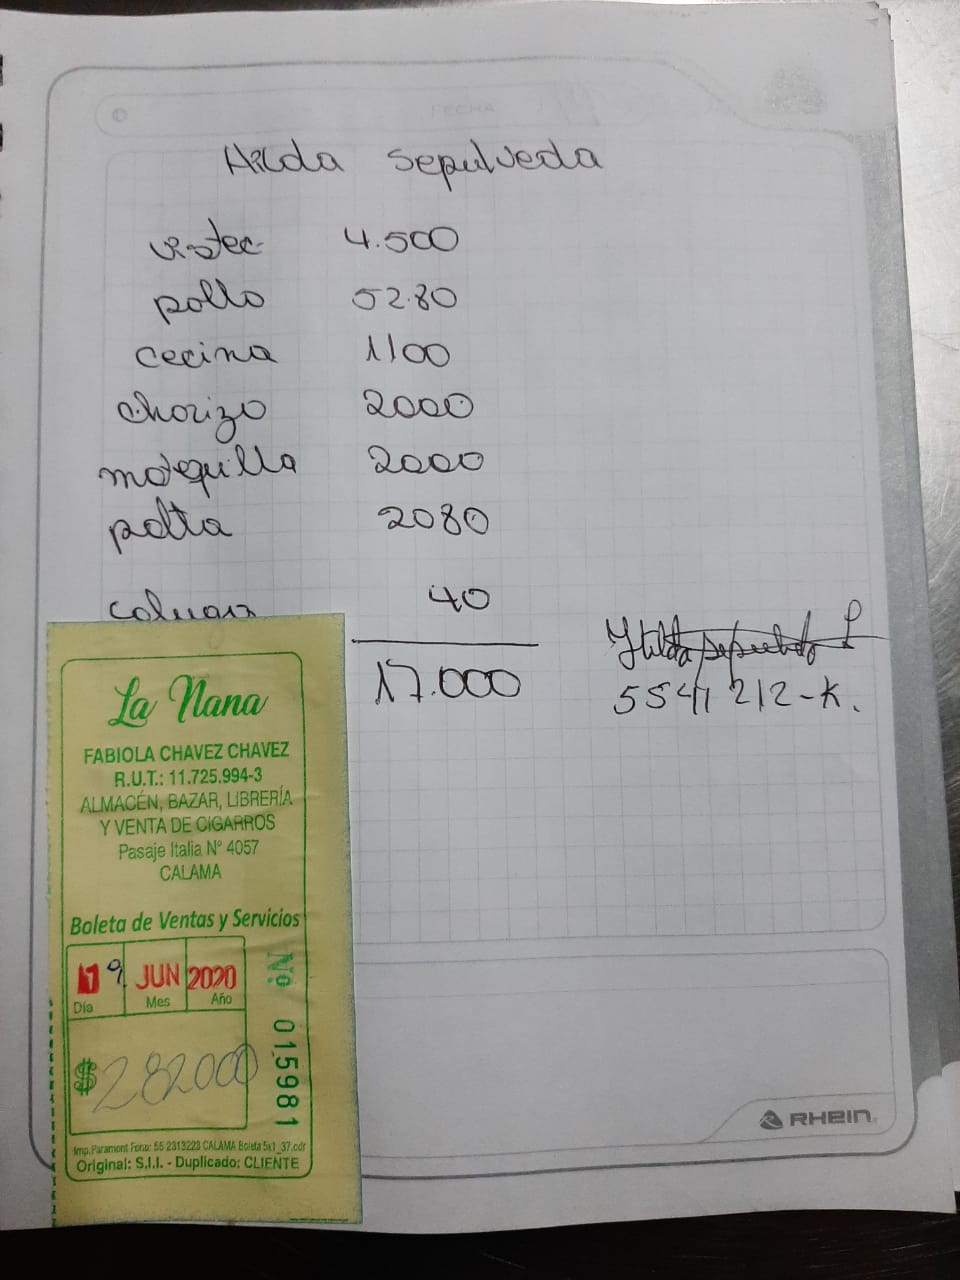 FECHA
Hilda Sepulveda
vistec 4.500
pollo 52.80
cecina 1100
chorizo 2000
motequilla 2000
palta 2080
40
17.000
Hilda Sepulveda L
5541212-K.
La Nana
FABIOLA CHAVEZ CHAVEZ
R.U.T.: 11.725.994-3
ALMACÉN, BAZAR, LIBRERÍA
Y VENTA DE CIGARROS
Pasaje Italia N° 4057
CALAMA
Boleta de Ventas y Servicios
19 JUN 2020
Día Mes Año
Nº 015981
$ 282000
Imp.Paramont Fono: 55 2313223 CALAMA Boleta 5x1_37.cdr
Original: S.I.I. - Duplicado: CLIENTE
RHEIN